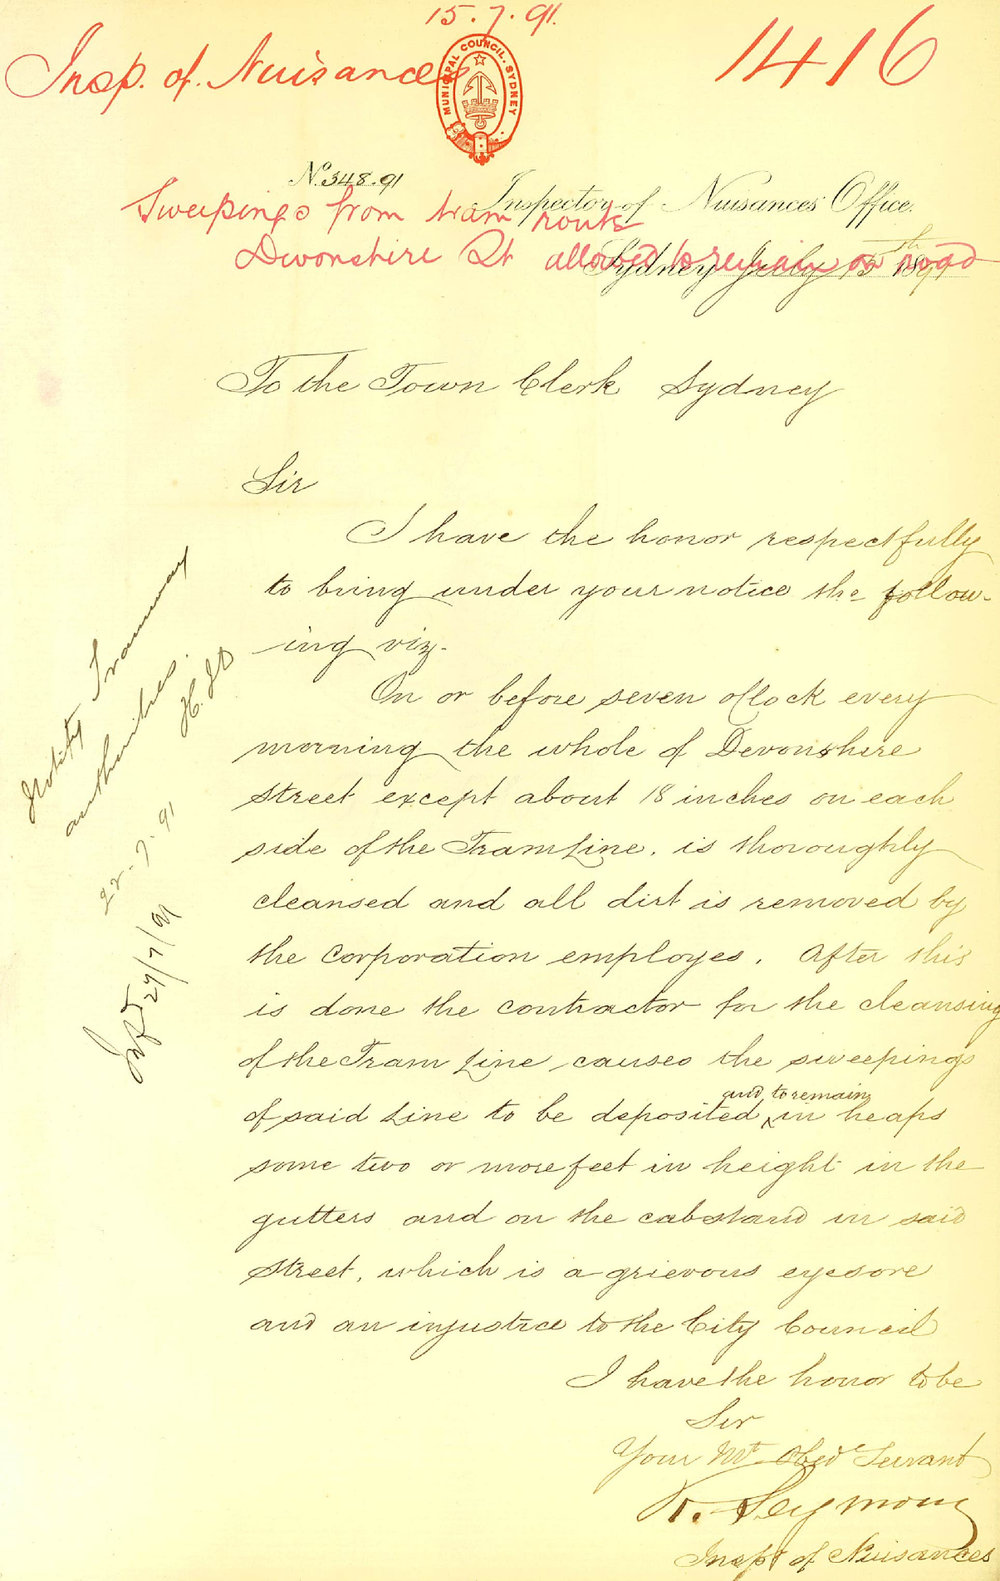 15.7.91.
Insp. of Nuisances
1416
MUNICIPAL COUNCIL. SYDNEY
No. 348.91
Inspector of Nuisances Office.
Sydney July 15th 1891
Sweepings from tram route
Devonshire St allowed to remain on road
To the Town Clerk Sydney
Sir
I have the honor respectfully
to bring under your notice the follow-
ing viz.
On or before seven oClock every
morning the whole of Devonshire
Street except about 18 inches on each
side of the Tram Line. is thoroughly
cleansed and all dirt is removed by
the Corporation employes. After this
is done the contractor for the cleansing
of the Tram Line causes the sweepings
of said Line to be deposited and to remain in heaps
some two or more feet in height in the
gutters and on the cabstand in said
Street, which is a grievous eyesore
and an injustice to the City Council
I have the honor to be
Sir
Your Mt Obedt Servant
R. Seymour
Inspr of Nuisances
Notify Tramway
authorities.
22.7.91
Infd 29/7/91